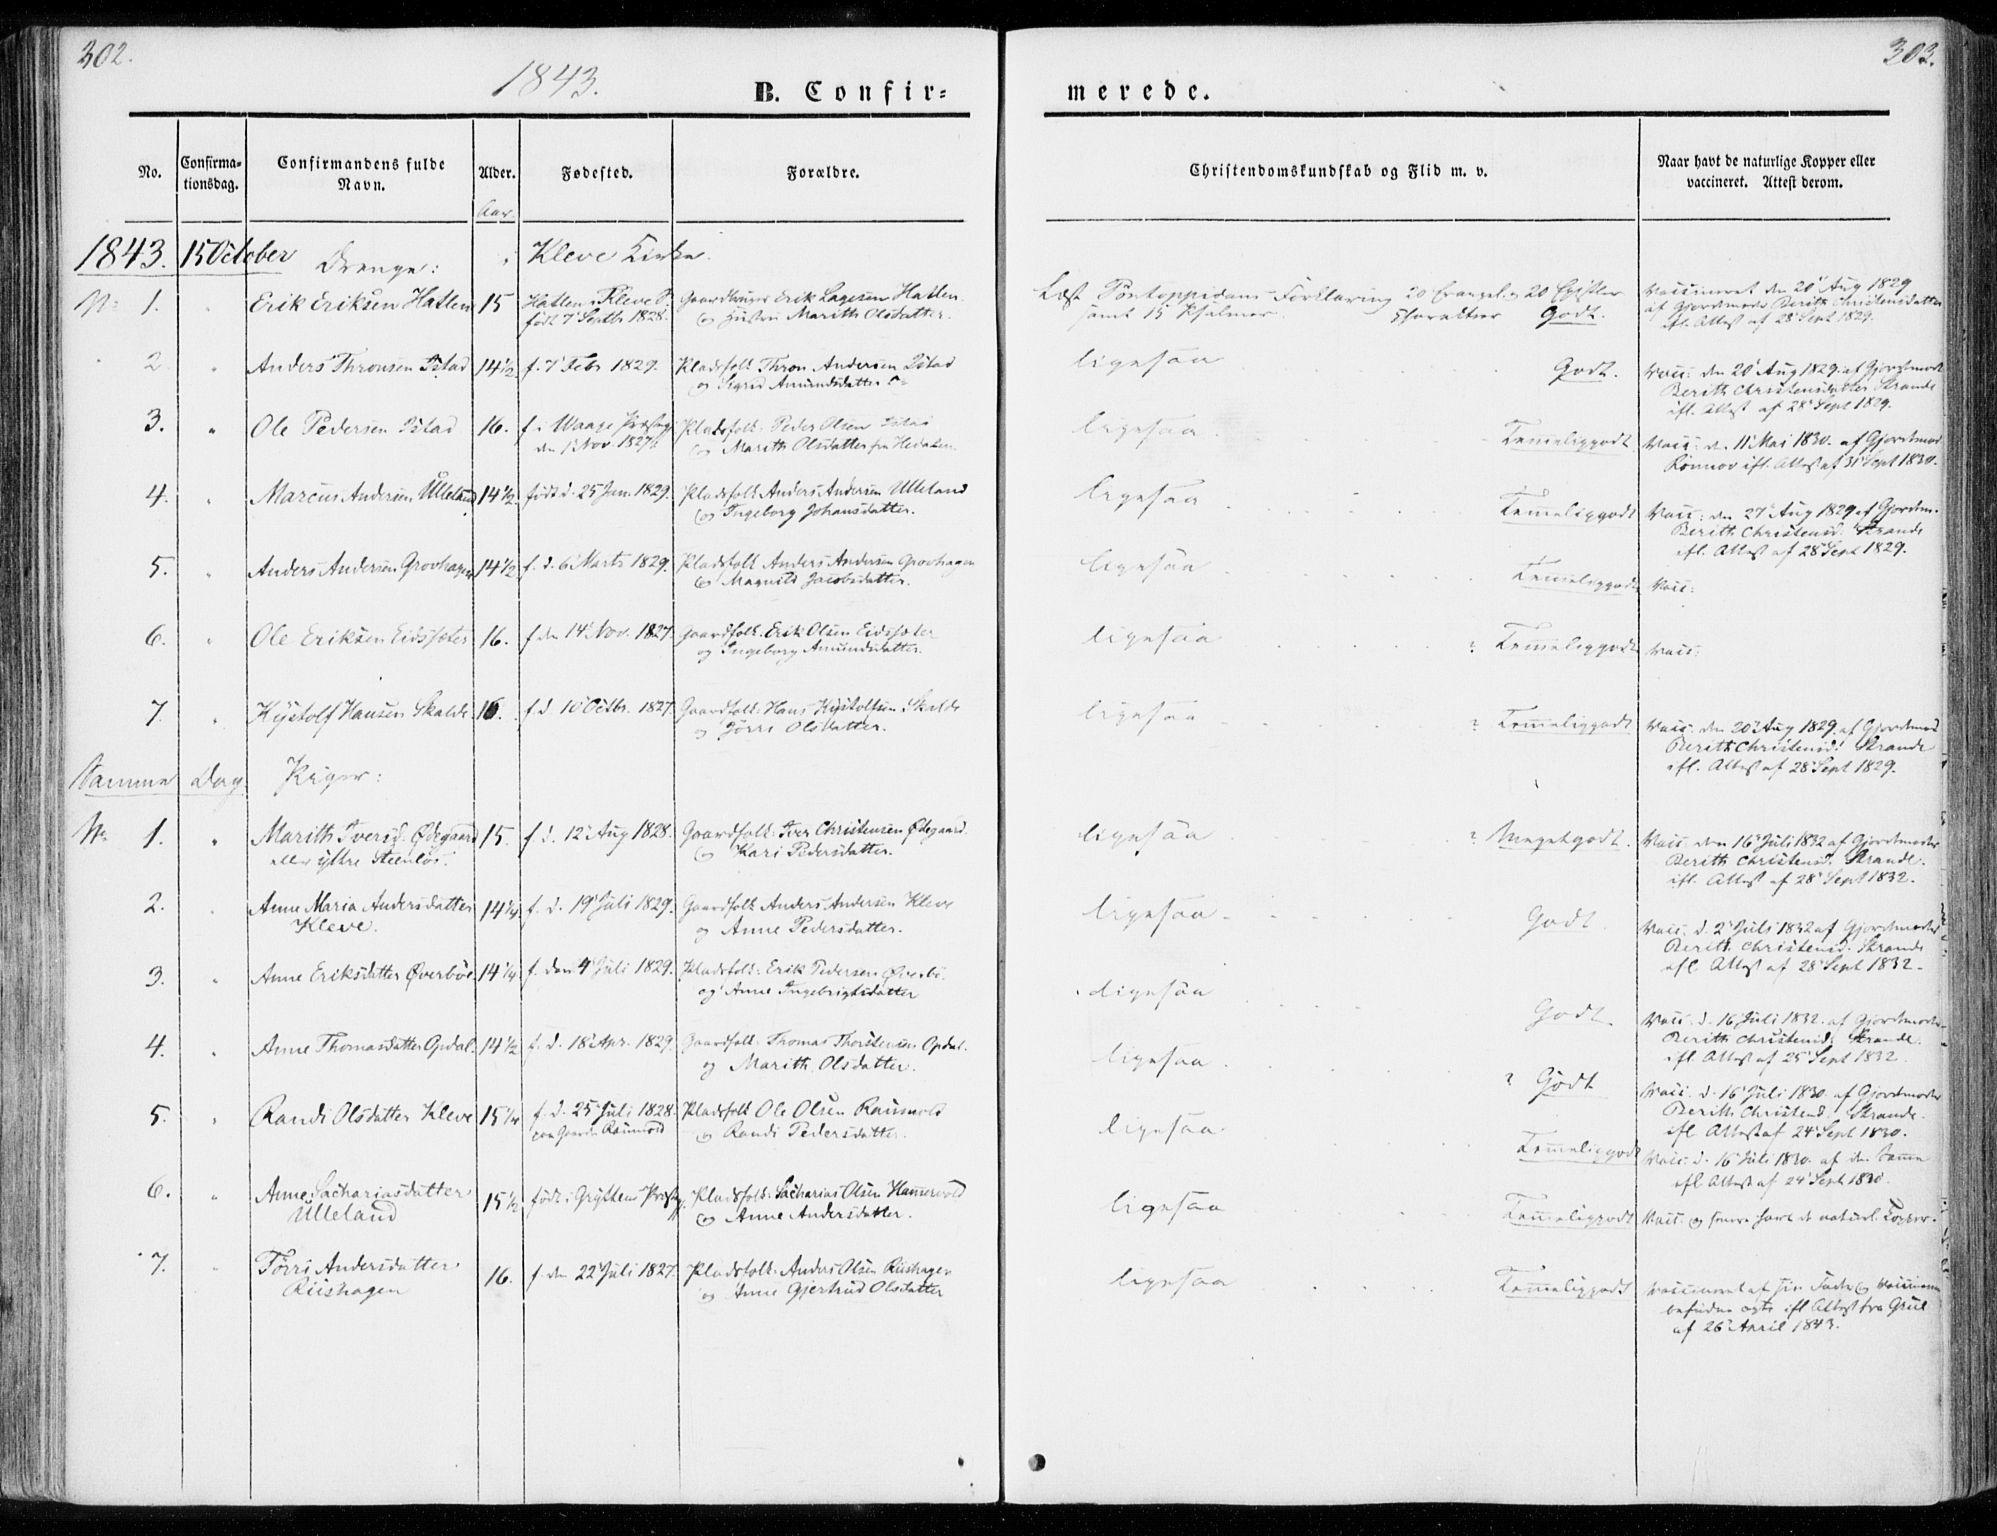 302.
303.
1843.
B. Confir-
merede.
No.
Confirma-
tionsdag.
Confirmandens fulde
Navn.
Alder.
Fødested.
Forældre.
Christendomskundskab og Flid m. v.
Naar havt de naturlige Kopper eller
vaccineret. Attest derom.
Aar.
1843. 15 October Drenge: i Kleve Kirke.
No 1. " Erik Eriksen Hatlen 15 Hatlen i Kleve S. Gaardbruger Erik Lagesen Hatlen Læst Pontoppidans Forklaring 20 Evangel. og 20 Epistler Vaccineret den 20 Aug 1829
født 7 Septbr 1828. og Hustru Marith Olsdatter. samt 15 Psalmer. Charakter Godt. af Gjordmoder Berith Christensdatter
ifl. Attest af 28 Sept 1829.
2. " Anders Thronsen Istad 14½ f. 7 Febr 1829. Pladsfolk Thron Andersen Istad ligesaa Godt. Vacc: den 20 Aug 1829. af Gjordmod
og Sigrid Amundsdatter Berith Christensdatter Strande
ifl. Attest af 28 Sept 1829.
3. " Ole Pedersen Istad 16. f. i Waage Præstegj Pladsfolk: Peder Olsen Istad ligesaa Temeliggodt Vacc: d. 11 Mai 1830. af Gjordemod
den 1 Nov. 1827. og Marith Olsdatter fra Hedalen Rønnov ifl. Attest af 31 Sept 1830.
4. " Marcus Andersen Ulleland 14½ født d. 25 Jan. 1829. Pladsfolk Anders Andersen Ulleland ligesaa Temeliggodt Vacc: den 27 Aug 1829 af Gjordem.
og Ingeborg Johansdatter. Berith Christensd. Strande
ifl. Attest af 28 Sept 1829.
5. " Anders Andersen Grovhagen 14½ f. d. 6 Marts 1829. Pladsfolk Anders Andersen Grovhagen ligesaa Temeliggodt Vacc:
og Magnild Jacobsdatter.
6. " Ole Eriksen Eidssæter 16. f den 14 Nov. 1827. Gaardfolk: Erik Olsen Eidssæter ligesaa Temeliggodt Vacc:
og Ingeborg Amundsdatter.
7. " Kystolf Hansen Skalde 16. f d. 10 Octbr. 1827. Gaardfolk: Hans Kystolfsen Skalde ligesaa Temeliggodt Vacc: den 20 Aug 1829. af Gjordmod
og Jørri Olsdatter. Berith Christensd. Strande
ifl. Attest af 28 Sept 1829.
Samme Dag Piger:
No 1. " Marith Iversd. Ødegaard 15. f. d. 12 Aug 1828. Gaardfolk: Iver Christensen Ødegaard. ligesaa Megetgodt. Vacc: den 16 Juli 1832 af Gjordmoder
eller yttre Steenløs. og Kari Pedersdatter. Berith Christensd. Strande.
ifl. Attest af 28 Sept 1832.
2. " Anne Maria Andersdatter 14¼ f. d. 19 Juli 1829. Gaardfolk Anders Andersen Kleve ligesaa Godt. Vacc. d. 2 Juli 1832 af Gjordmoder
Kleve. og Anne Pedersdatter. Berith Christensd. Strande
ifl Attest af 28 Sept 1832.
3. " Anne Eriksdatter Øverbøe 14¼ f. den 4 Juli 1829. Pladsfolk: Erik Pedersen Øverbø. ligesaa Godt. Vacc. d. 16 Juli 1832. af Gjordmoder
og Anne Ingebrigtsdatter Berith Christensd. Strande.
ifl. Attest af 25 Sept 1832.
4. " Anne Thomasdatter Opdal. 14½ f. d. 18 Apr. 1829. Gaardfolk: Thomas Thorstensen Opdal. ligesaa Godt Vacc. d. 16 Juli 1830. af Gjordmoder
og Marith Olsdatter. Berith Christensd. Strande.
ifl Attest af 24 Sept 1830.
5. " Randi Olsdatter Kleve 15¼ f. d. 25 Juli 1828. Pladsfolk Ole Olsen Raumold ligesaa Temeliggodt Vacc. d. 16 Juli 1830. af den Samme
paa Gaarden Raumold og Randi Pedersdatter. ifl Attest af 24 Sept 1830.
6. " Anne Sachariasdatter 15½ født i Gryttens Præstegj. Pladsfolk: Sacharias Olsen Hammervold ligesaa Temeliggodt Vacc. og senere havt de naturl. Kopper.
Ulleland og Anne Andersdatter.
7. " Jørri Andersdatter 16. f den 22 Juli 1827. Pladsfolk: Anders Olsen Riishagen ligesaa Temeliggodt Vaccineret af sin Fader og
Riishagen og Anne Gjertrud Olsdatter befunden ægte ifl Attest fra
af 26 April 1843.